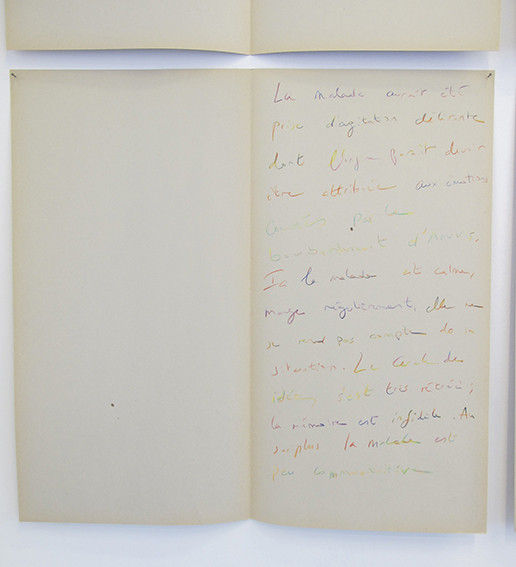 La malade aurait été
prise d'agitation délirante
dont l'origine paraît devoir
être attribuée aux émotions
causées par le
bombardement d'Arras.
Ici la malade est calme,
mange régulièrement, elle ne
se rend pas compte de sa
situation. Le cercle des
idées s'est très rétréci ;
la mémoire est infidèle. Au
surplus la malade est
peu communicative